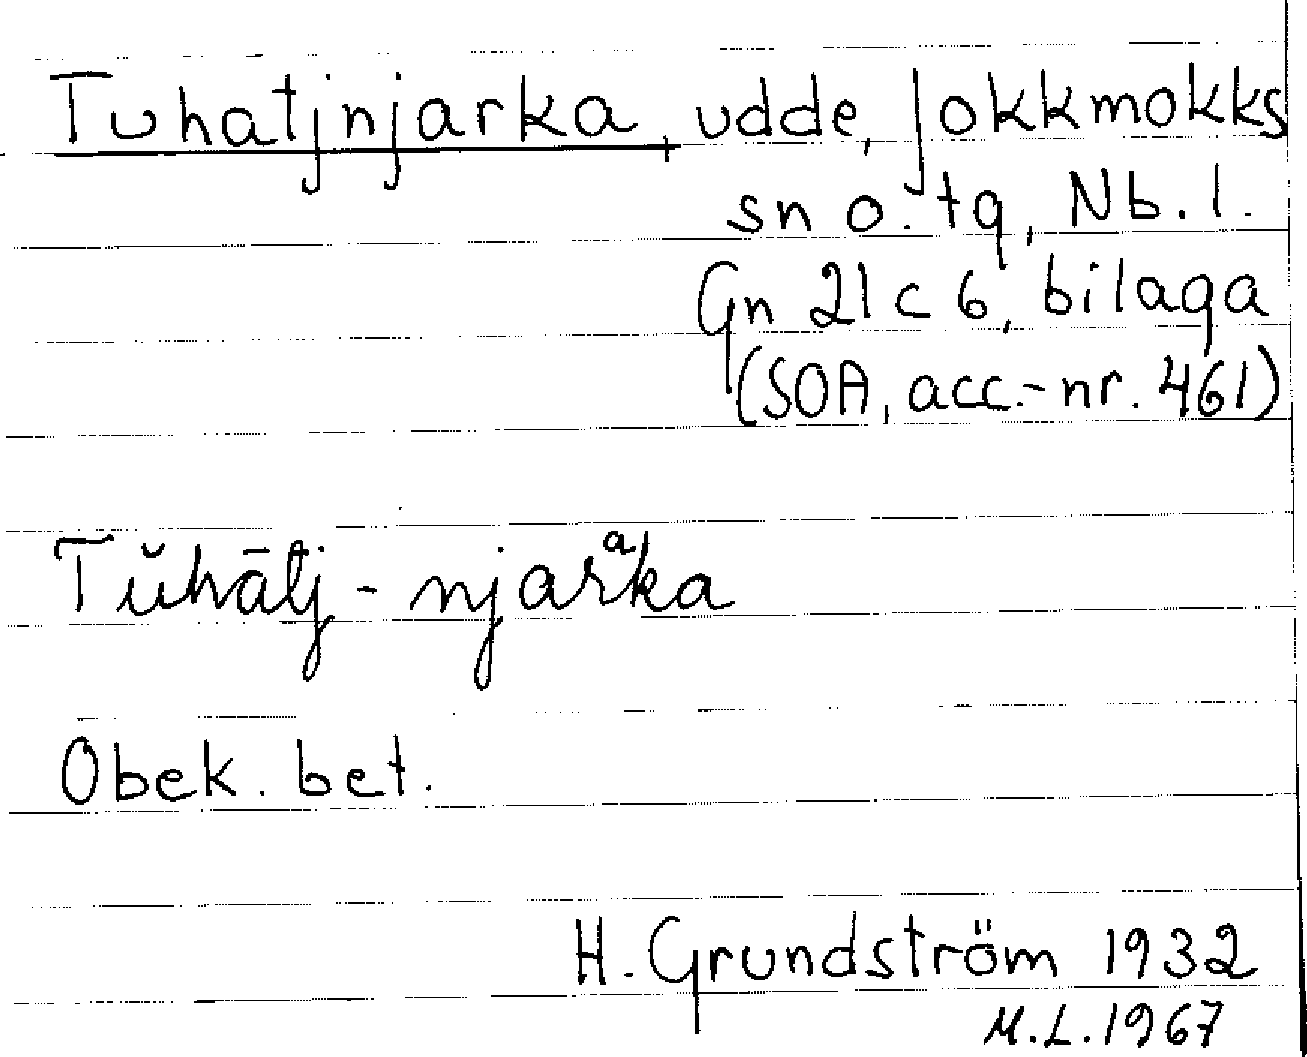 Tuhatjnjarka, udde, Jokkmokks
sn o. tg, Nb. l.
Gn 21 c 6, bilaga
(SOA, acc.-nr. 461)
Tŭhātj-njarᵃka
Obek. bet.
H. Grundström 1932
M.L. 1967